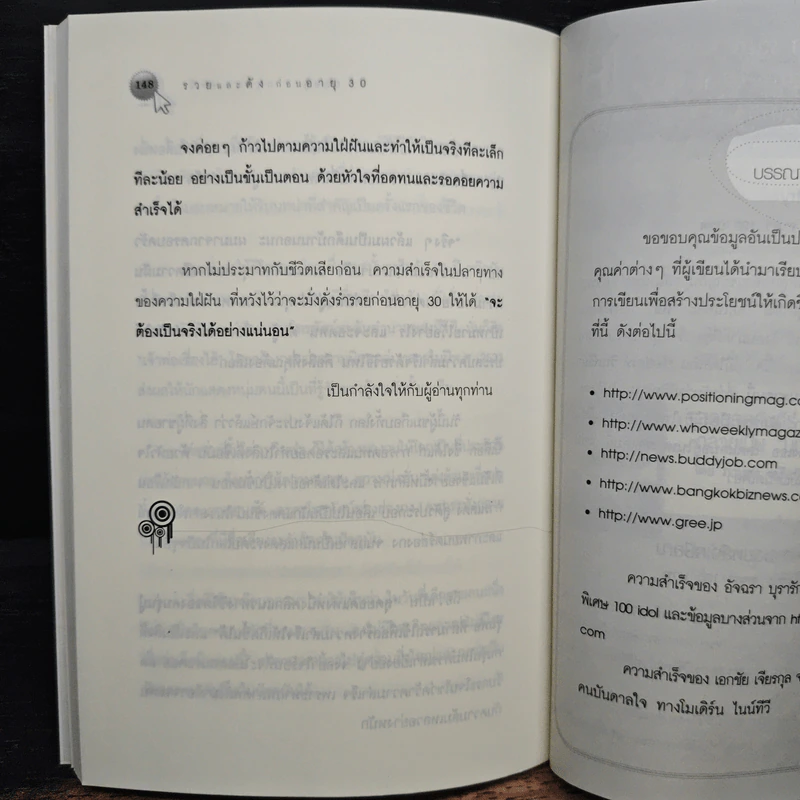 148
รวยและดัง ก่อนอายุ 30
จงค่อยๆ ก้าวไปตามความใฝ่ฝันและทำให้เป็นจริงทีละเล็ก
ทีละน้อย อย่างเป็นขั้นเป็นตอน ด้วยหัวใจที่อดทนและรอคอยความ
สำเร็จได้
หากไม่ประมาทกับชีวิตเสียก่อน ความสำเร็จในปลายทาง
ของความใฝ่ฝัน ที่หวังไว้ว่าจะมั่งคั่งร่ำรวยก่อนอายุ 30 ให้ได้ "จะ
ต้องเป็นจริงได้อย่างแน่นอน"
เป็นกำลังใจให้กับผู้อ่านทุกท่าน
บรรณา
ขอขอบคุณข้อมูลอันเป็นป
คุณค่าต่างๆ ที่ผู้เขียนได้นำมาเรีย
การเขียนเพื่อสร้างประโยชน์ให้เกิด
ที่นี้ ดังต่อไปนี้
• http://www.positioningmag.co
• http://www.whoweeklymagaz
• http://news.buddyjob.com
• http://www.bangkokbiznews.co
• http://www.gree.jp
ความสำเร็จของ อัจฉรา บุรารัก
พิเศษ 100 idol และข้อมูลบางส่วนจาก ht
com
ความสำเร็จของ เอกชัย เจียรกุล
คนบันดาลใจ ทางโมเดิร์น ไนน์ทีวี